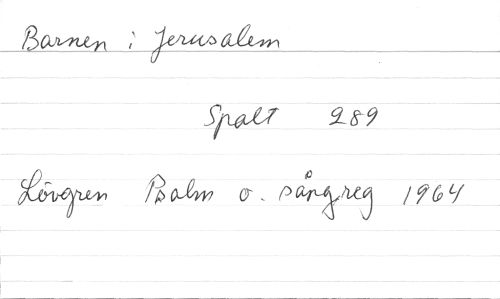 Barnen i Jerusalem
Spalt 289
Lövgren Psalm o. sångreg 1964